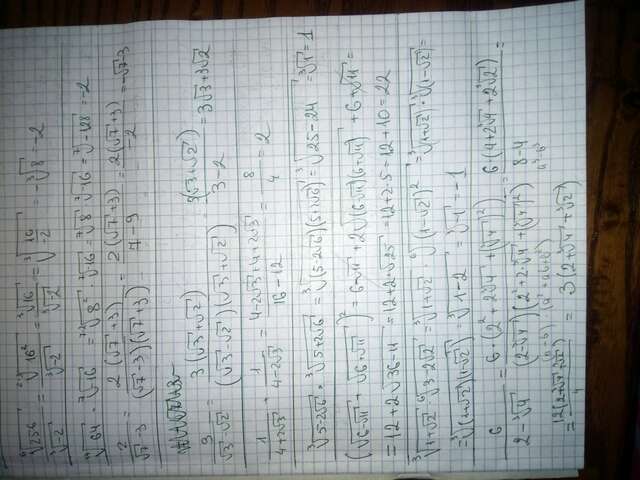 ⁶√256/³√-2 = ⁶√16²/³√-2 = ³√16/³√-2 = ³√(16/-2) = -³√8 = -2
¹⁴√64 · ⁷√-16 = ¹⁴√8² · ⁷√-16 = ⁷√8 · ⁷√-16 = ⁷√-128 = -2
2/(√7-3) = 2(√7+3)/((√7-3)(√7+3)) = 2(√7+3)/(7-9) = 2(√7+3)/-2 = -√7-3
3/(√3-√2) = 3(√3+√2)/((√3-√2)(√3+√2)) = 3(√3+√2)/(3-2) = 3√3+3√2
1/(4+2√3) + 1/(4-2√3) = (4-2√3+4+2√3)/(16-12) = 8/4 = 2
³√(5-2√6) · ³√(5+2√6) = ³√((5-2√6)(5+2√6)) = ³√(25-24) = ³√1 = 1
(√(6-√11) + √(6+√11))² = 6-√11 + 2√((6-√11)(6+√11)) + 6+√11 =
= 12 + 2√(36-11) = 12+2√25 = 12+2·5 = 12+10 = 22
³√(1+√2) · ⁶√(3-2√2) = ³√(1+√2) · ⁶√((1-√2)²) = ³√(1+√2) · ³√(1-√2) =
= ³√((1+√2)(1-√2)) = ³√(1-2) = ³√-1 = -1
6/(2-³√4) = 6·(2²+2³√4+(³√4)²)/((2-³√4)(2²+2·³√4+(³√4)²)) = 6(4+2³√4+2³√2)/(8-4) =
(a-b) (a²+ab+b²) a³-b³
= 12(2+³√4+³√2)/4 = 3(2+³√4+³√2)